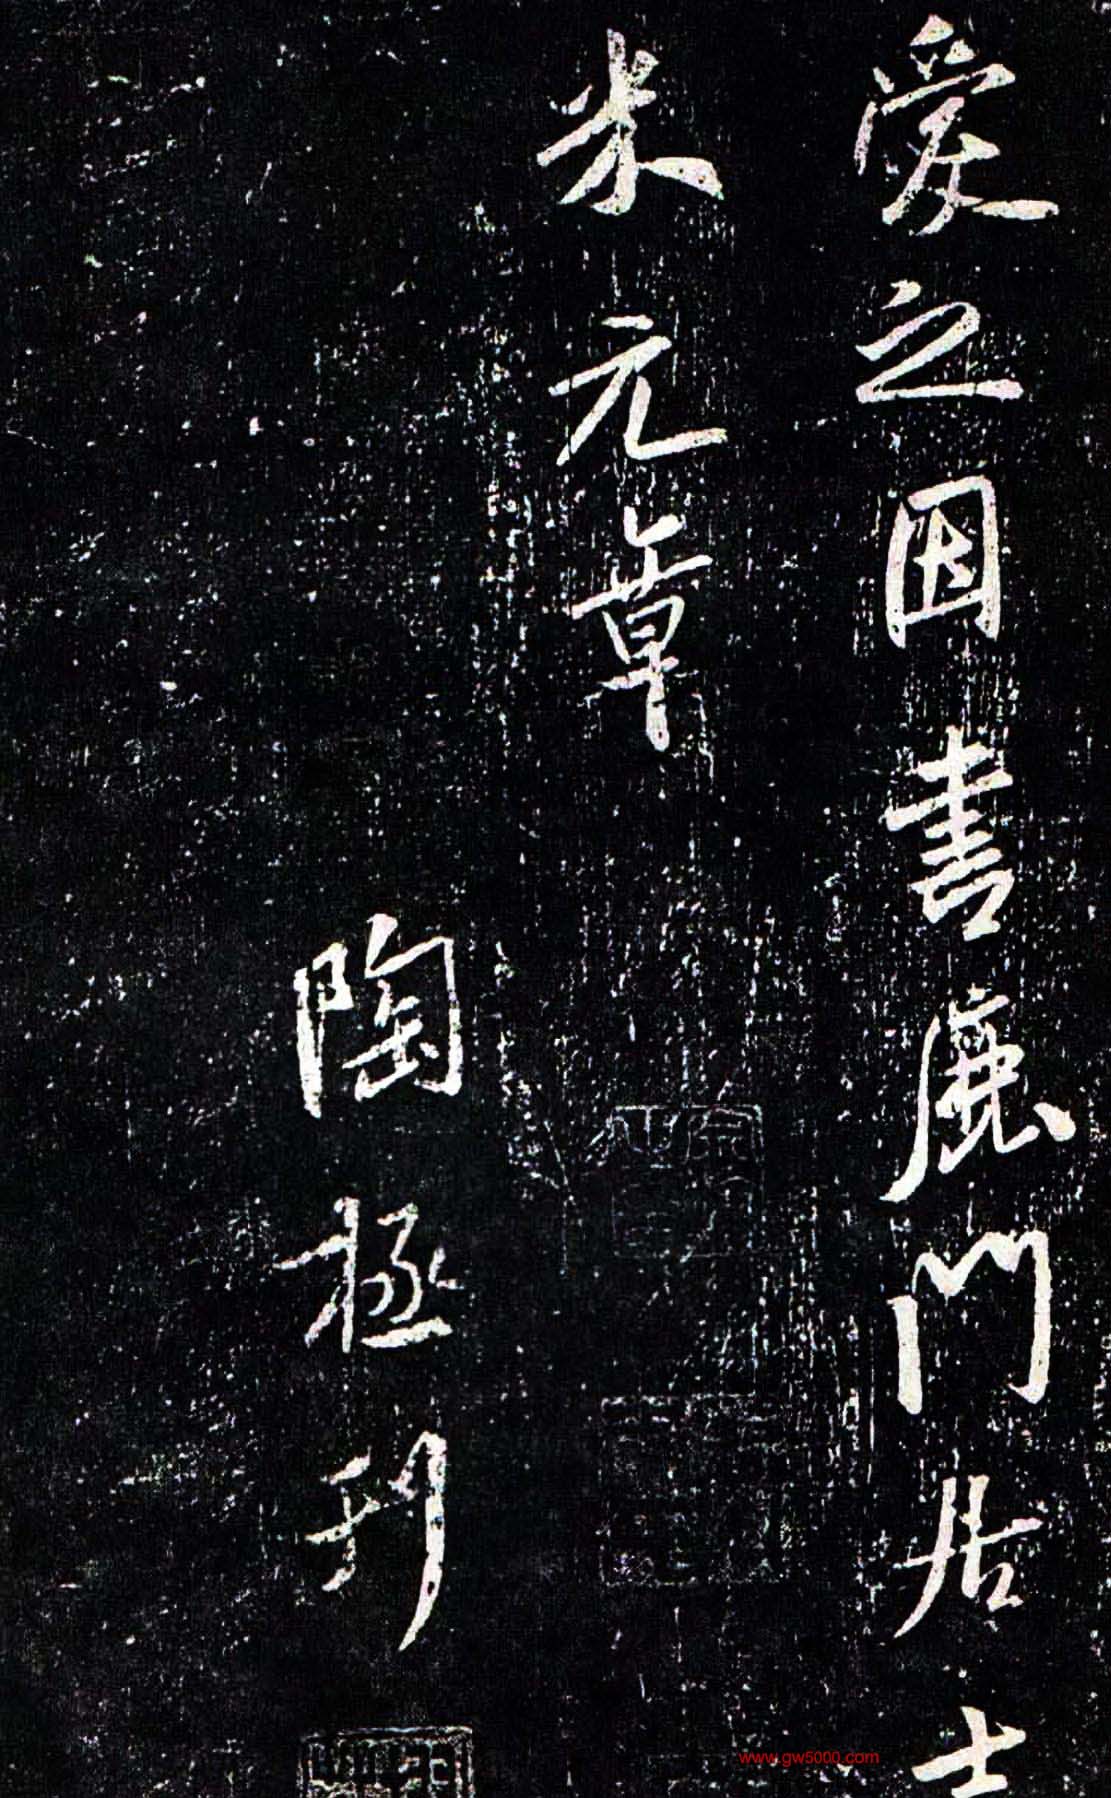 愛之因書鹿門居士
米元章
陶拯刊
www.gw5000.com